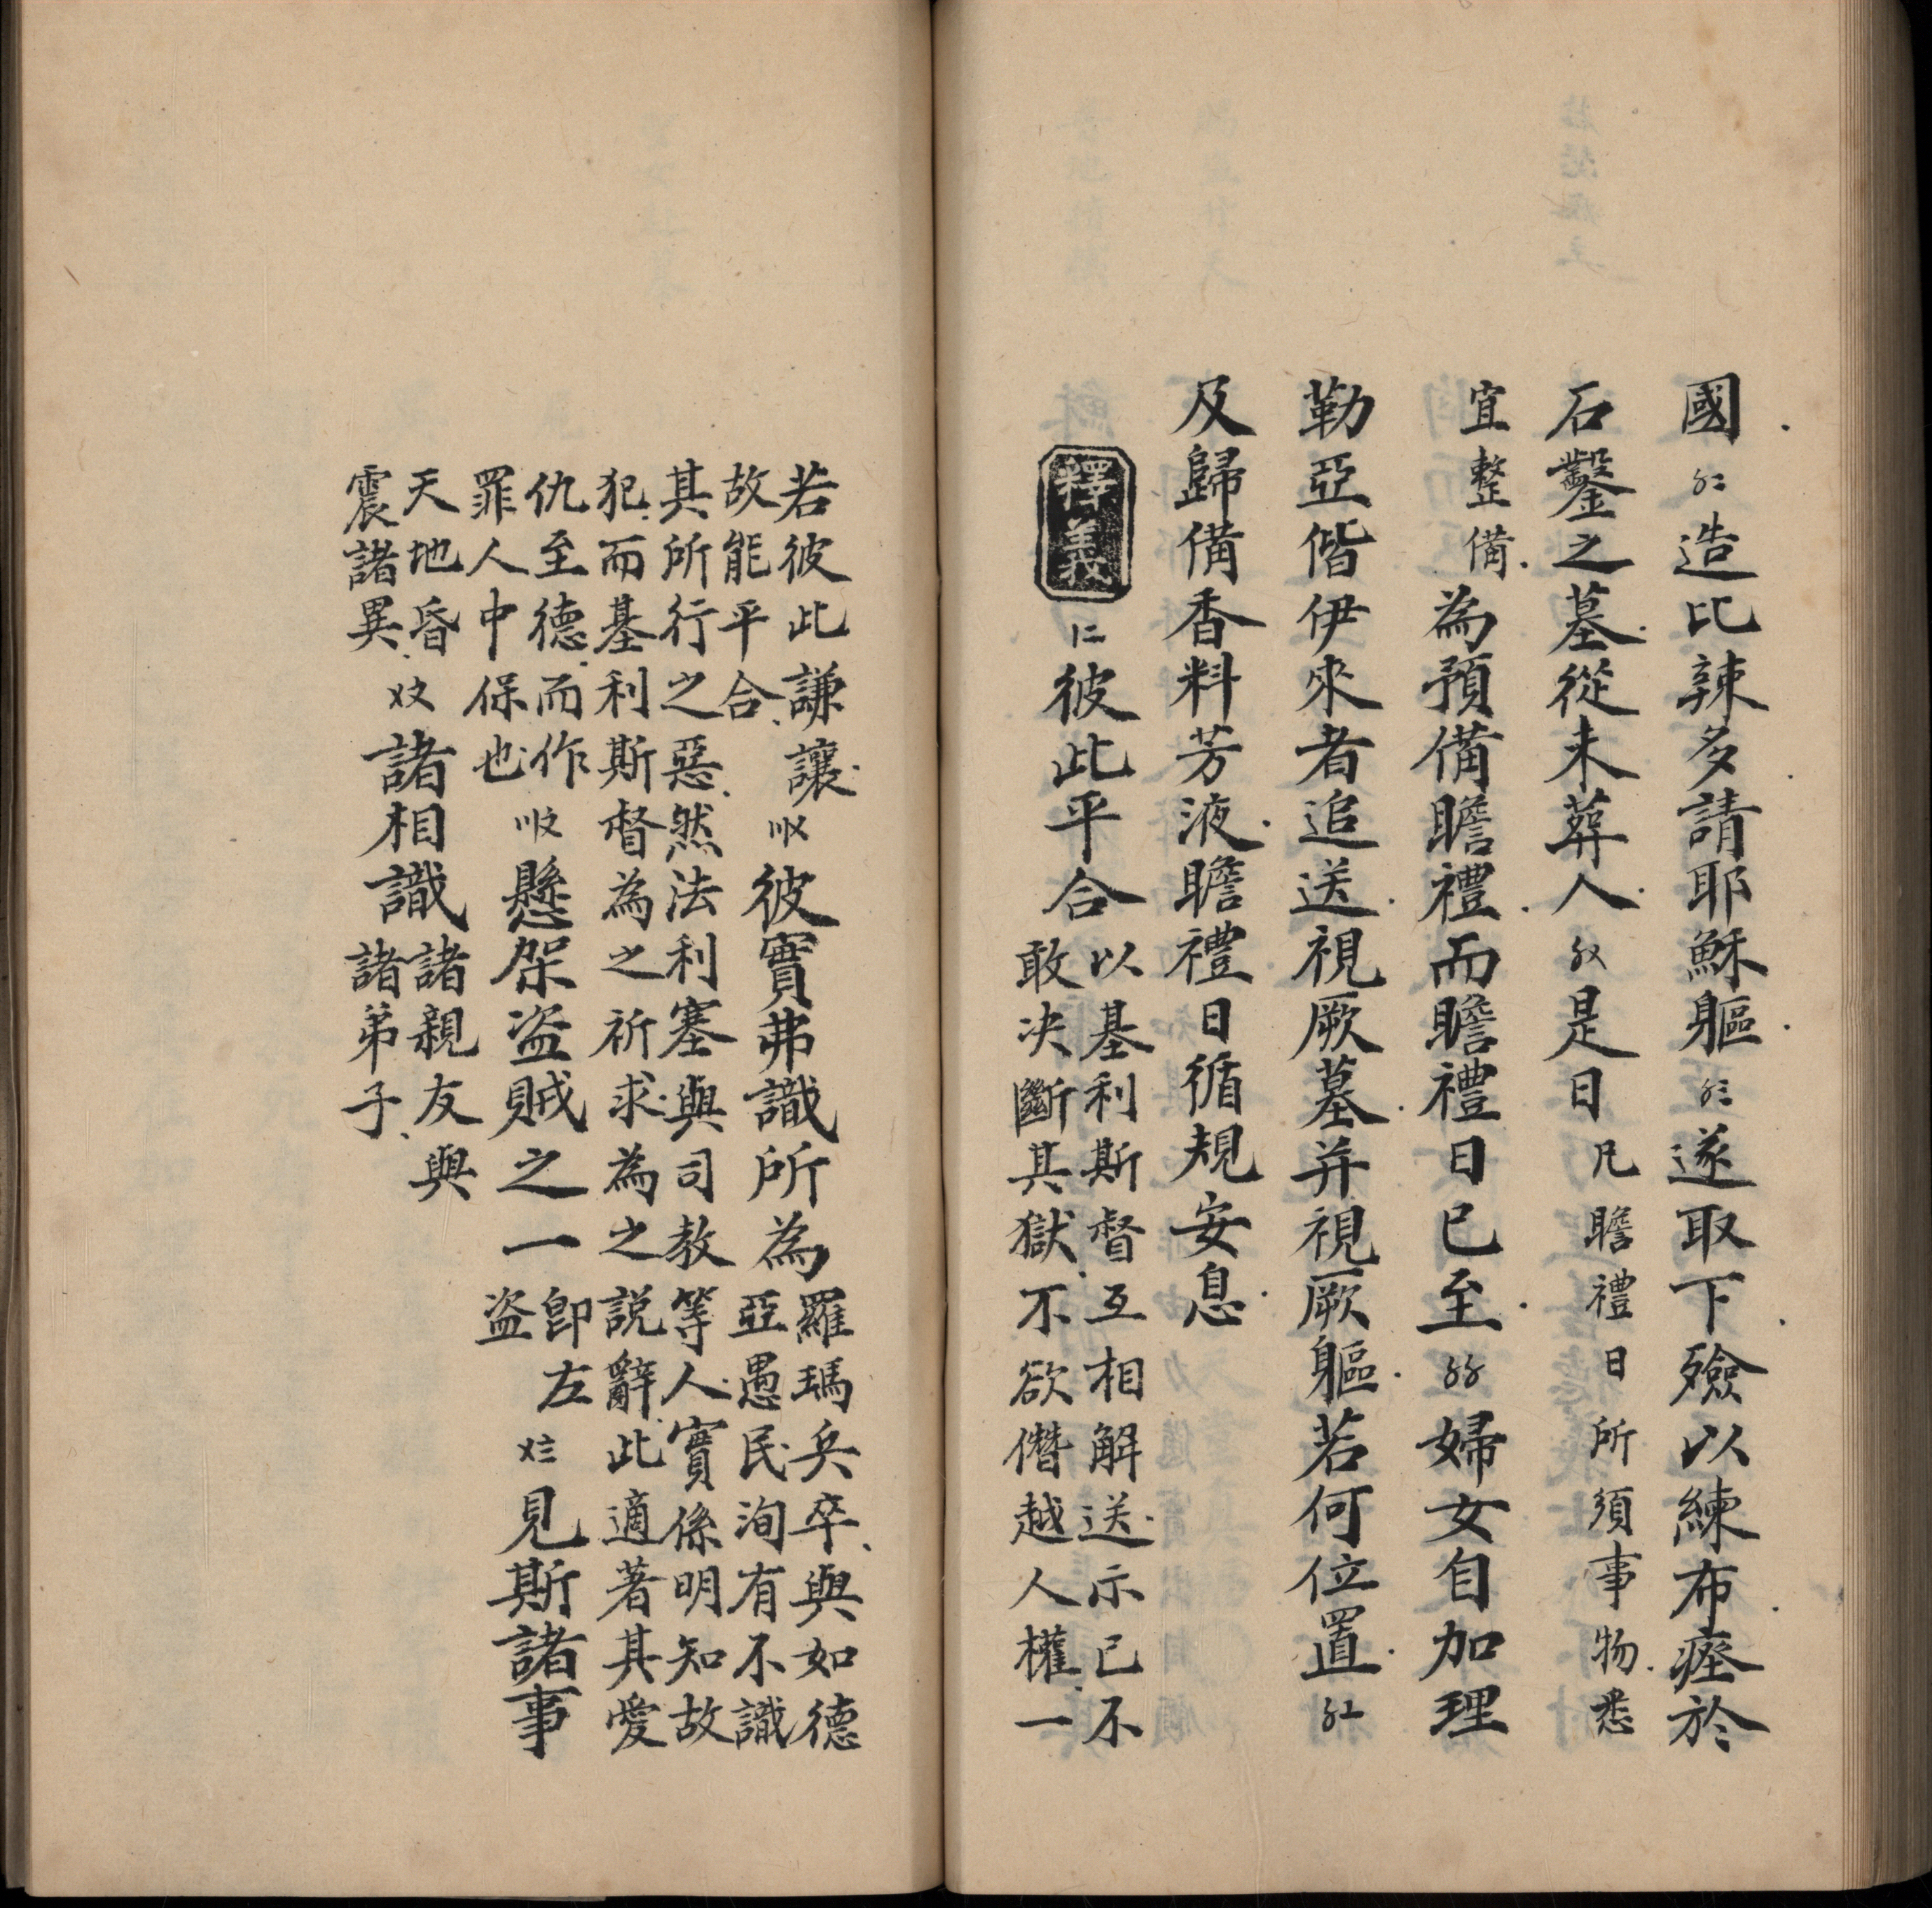 國〥二造比辣多請耶穌軀〥三遂取下殮以練布瘞於
石鑿之墓從未葬人〥〤是日凡瞻禮日所須事物悉
宜整備為預備瞻禮而瞻禮日已至〥〥婦女自加理
勒亞偕伊來者追送視厥墓并視厥軀若何位置〥〦
及歸備香料芳液瞻禮日循規安息
釋義
〡二彼此平合
以基利斯督互相解送示已不
敢决斷其獄不欲僭越人權一
若彼此謙讓
故能平合
〣〤彼實弗識所為
羅瑪兵卒與如德
亞愚民洵有不識
其所行之惡然法利塞與司教等人實係明知故
犯而基利斯督為之祈求為之說辭此適著其愛
仇至德而作
罪人中保也
〣〩懸架盜賊之一
卽左
盜
〤三見斯諸事
天地昏
震諸異
〤〩諸相識
諸親友與
諸弟子